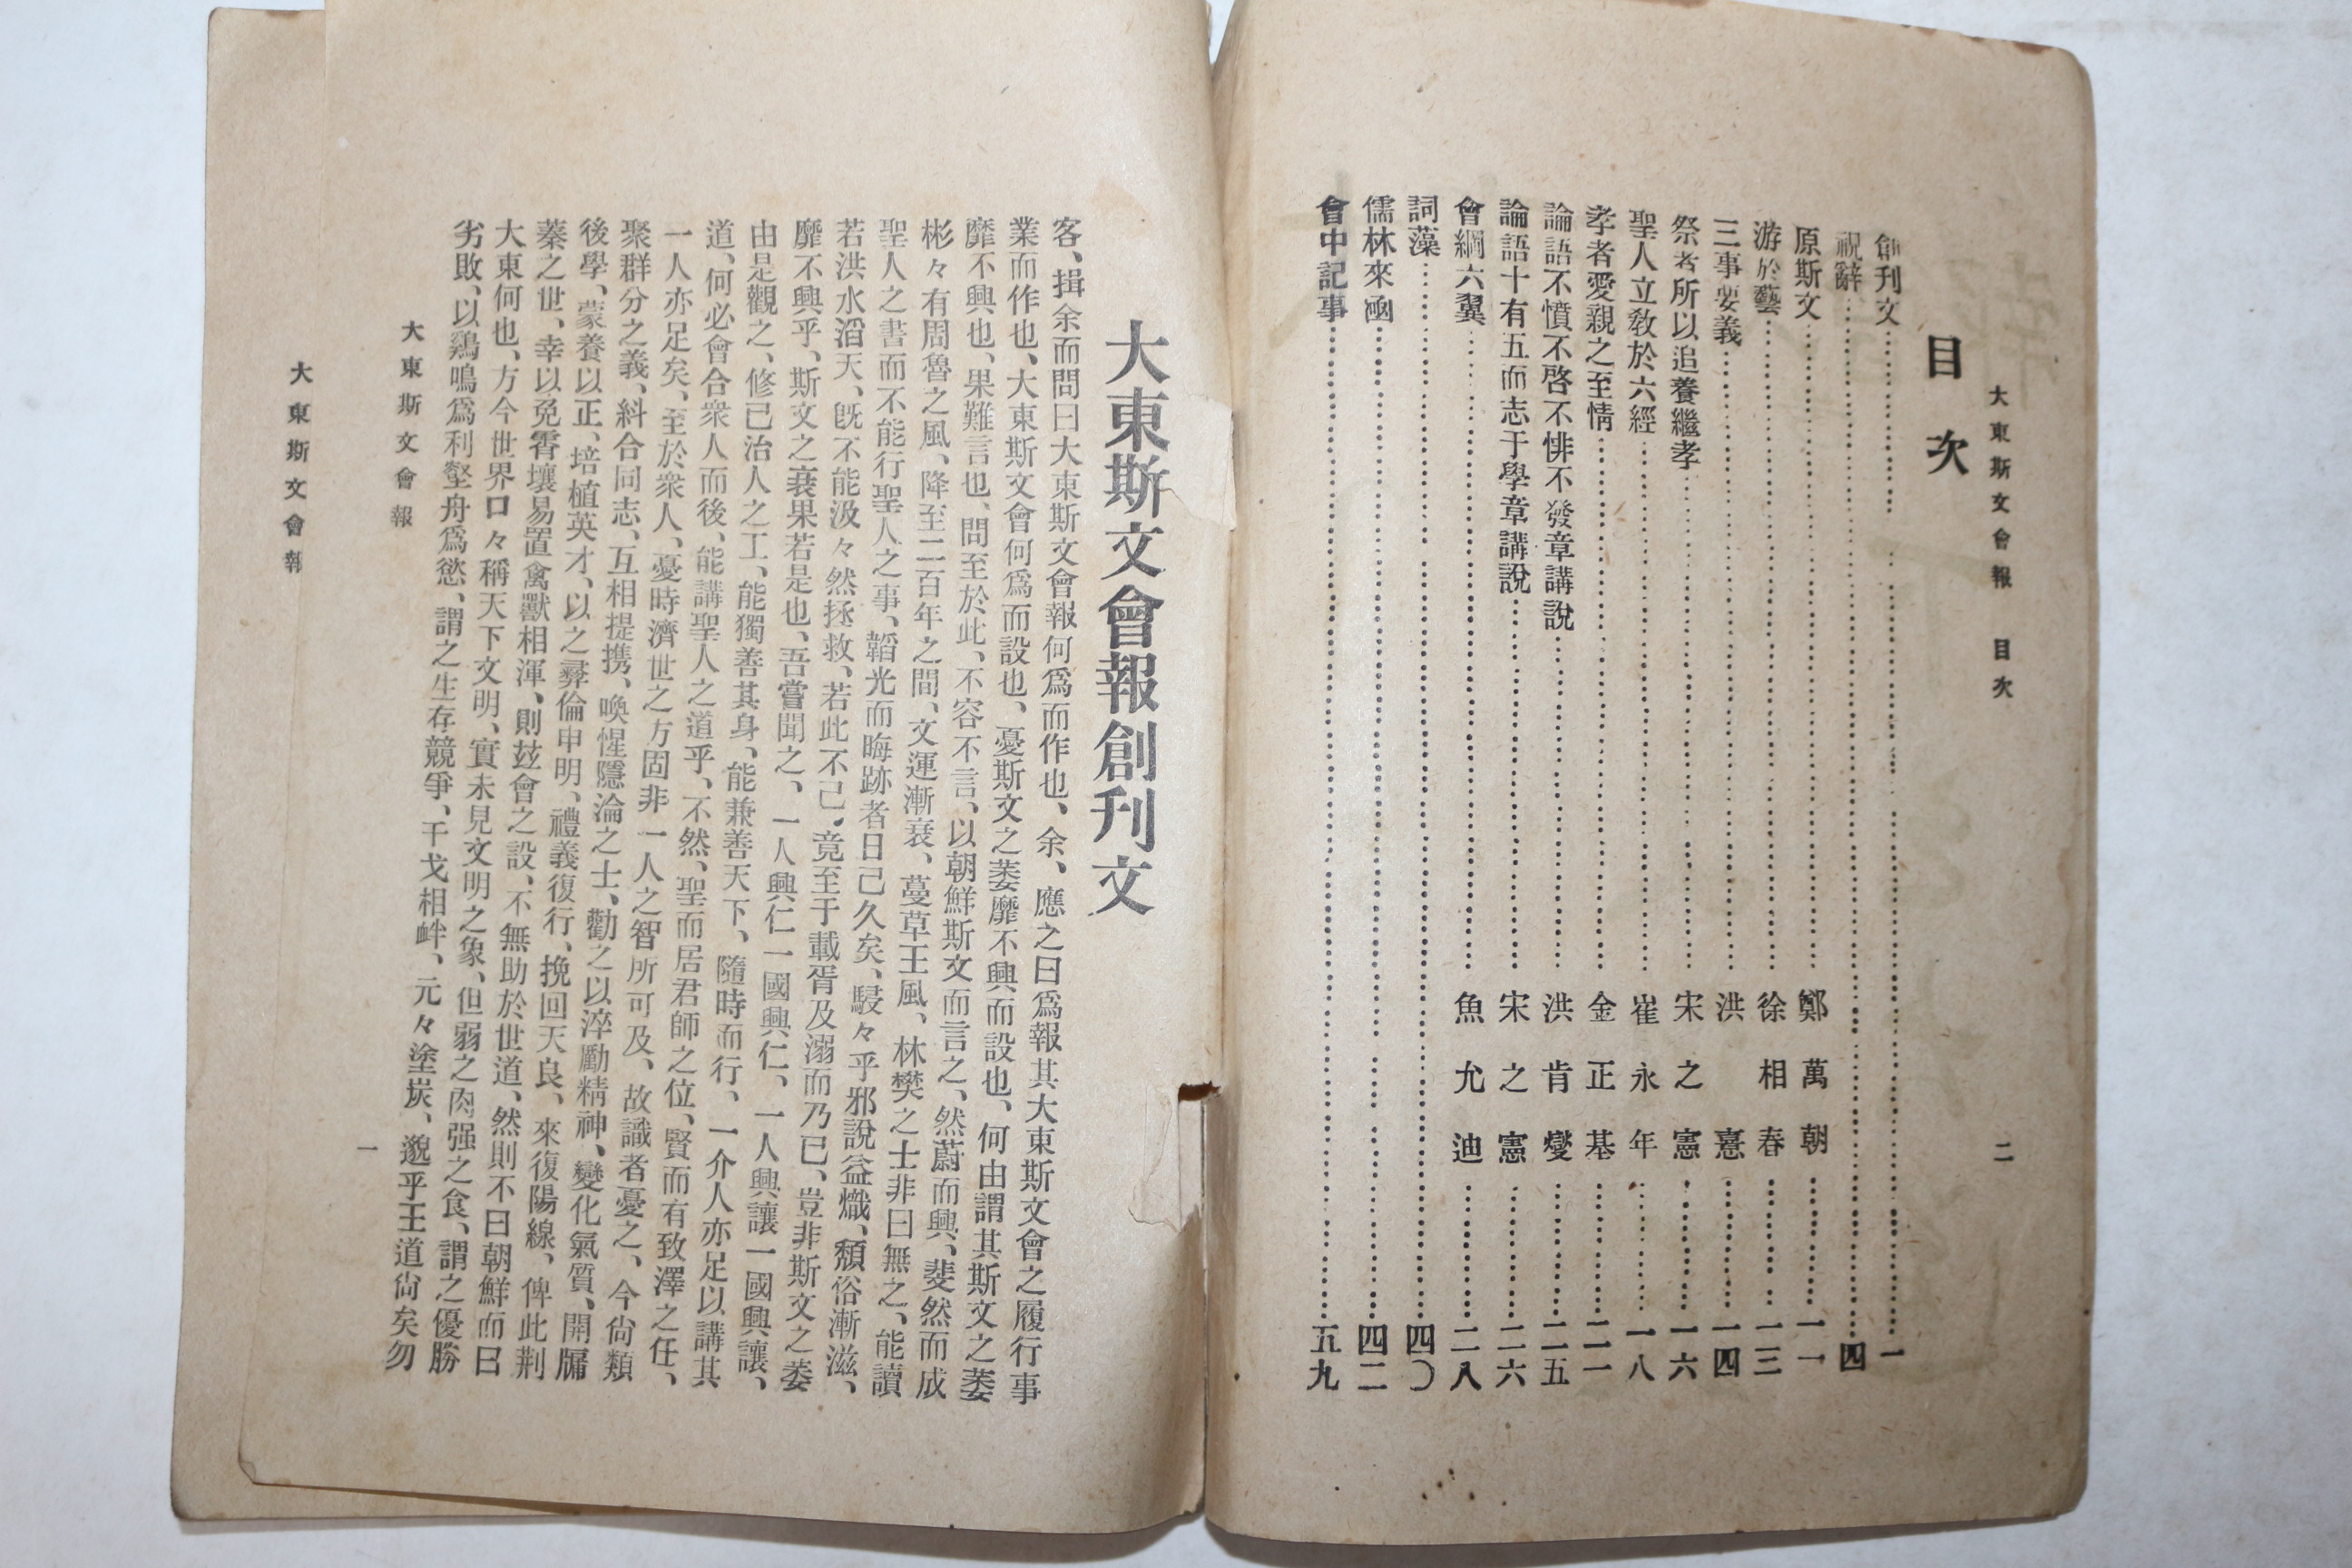 大東斯文會報 目次 二
目次
創刊文……一
祝辭……四
原斯文……鄭萬朝……一一
游於藝……徐相春……一三
三事要義……洪憙……一四
祭者所以追養繼孝……宋之憲……一六
聖人立敎於六經……崔永年……一八
孝者愛親之至情……金正基……二一
論語不憤不啓不悱不發章講說……洪肯燮……二五
論語十有五而志于學章講說……宋之憲……二六
會綱六翼……魚允迪……二八
詞藻……四〇
儒林來凾……四二
會中記事……五九
大東斯文會報創刊文
客、揖余而問曰大東斯文會報何爲而作也、余、應之曰爲報其大東斯文會之履行事
業而作也、大東斯文會何爲而設也、憂斯文之萎靡不興而設也、何由謂其斯文之萎
靡不興也、果難言也、問至於此、不容不言、以朝鮮斯文而言之、然蔚而興、斐然而成
彬々有周魯之風、降至二百年之間、文運漸衰、蔓草王風、林樊之士非曰無之、能讀
聖人之書而不能行聖人之事、韜光而晦跡者日己久矣、駸々乎邪說益熾、頹俗漸滋、
若洪水滔天、旣不能汲々然拯救、若此不己、竟至于載胥及溺而乃已、豈非斯文之萎
靡不興乎、斯文之衰果若是也、吾嘗聞之、一人興仁一國興仁、一人興讓一國興讓、
由是觀之、修己治人之工、能獨善其身、能兼善天下、隨時而行、一介人亦足以講其
道、何必會合衆人而後、能講聖人之道乎、不然、聖而居君師之位、賢而有致澤之任、
一人亦足矣、至於衆人、憂時濟世之方固非一人之智所可及、故識者憂之、今尙類
聚群分之義、糾合同志、互相提携、喚惺隱淪之士、勸之以淬勵精神、變化氣質、開牖
後學、蒙養以正、培植英才、以之彛倫申明、禮義復行、挽回天良、來復陽線、俾此荆
蓁之世、幸以免霄壤易置禽獸相渾、則玆會之設、不無助於世道、然則不曰朝鮮而曰
大東何也、方今世界口々稱天下文明、實未見文明之象、但弱之肉强之食、謂之優勝
劣敗、以鷄鳴爲利壑舟爲慾、謂之生存競爭、干戈相衅、元々塗炭、邈乎王道尙矣勿
大東斯文會報 一
大東斯文會報